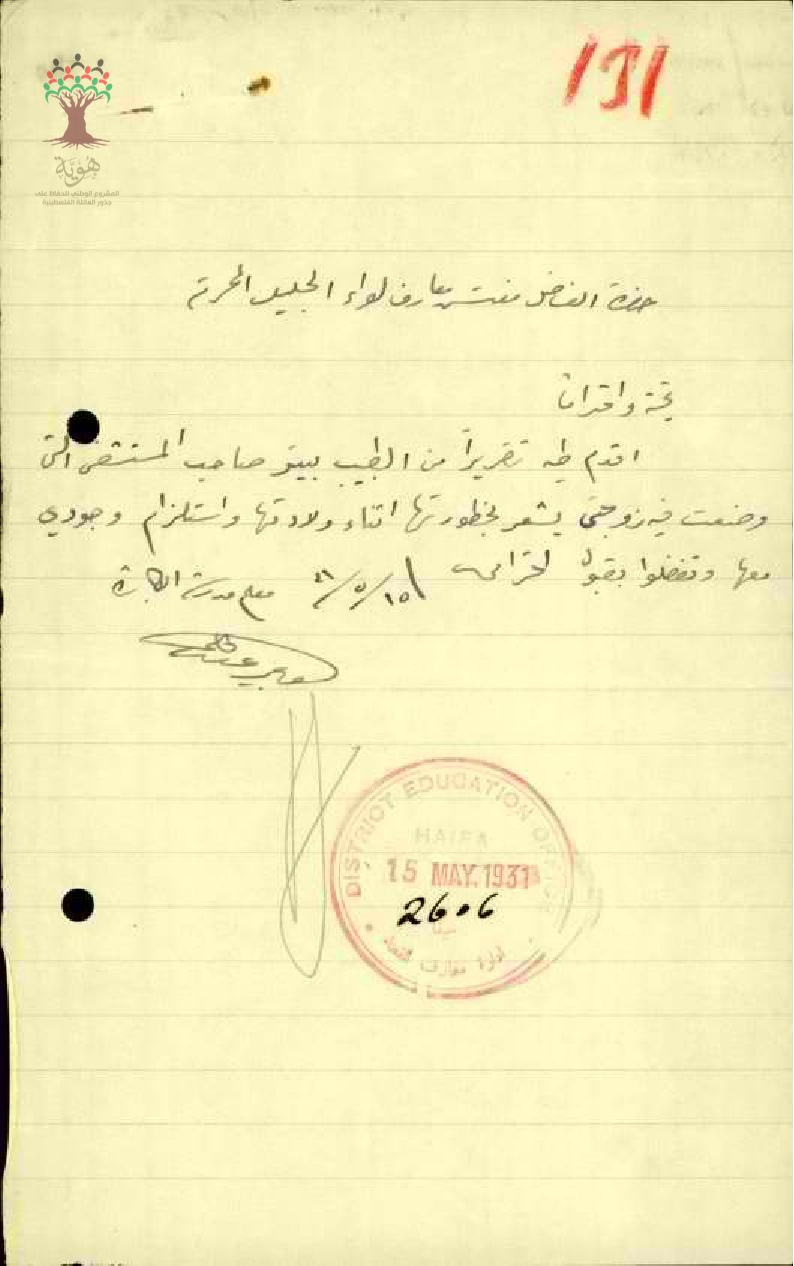 131
هُويَّة
المشروع الوطني للحفاظ على
جذور العائلة الفلسطينية
حضرة الفاضل مفتش معارف لواء الجليل المحترم
تحية واحتراما
اقدم طيه تقريراً من الطبيب صاحب المستشفى التي
وضعت فيه زوجتي يشعر بخطورتها اثناء ولادتها واستلزام وجودي
معها وتفضلوا بقبول احترامي ١٥/٥/٣١ معلم مدرسة
DISTRICT EDUCATION OFFICE
HAIFA
15 MAY.1931
2606
حيفا
ادارة معارف القضاء